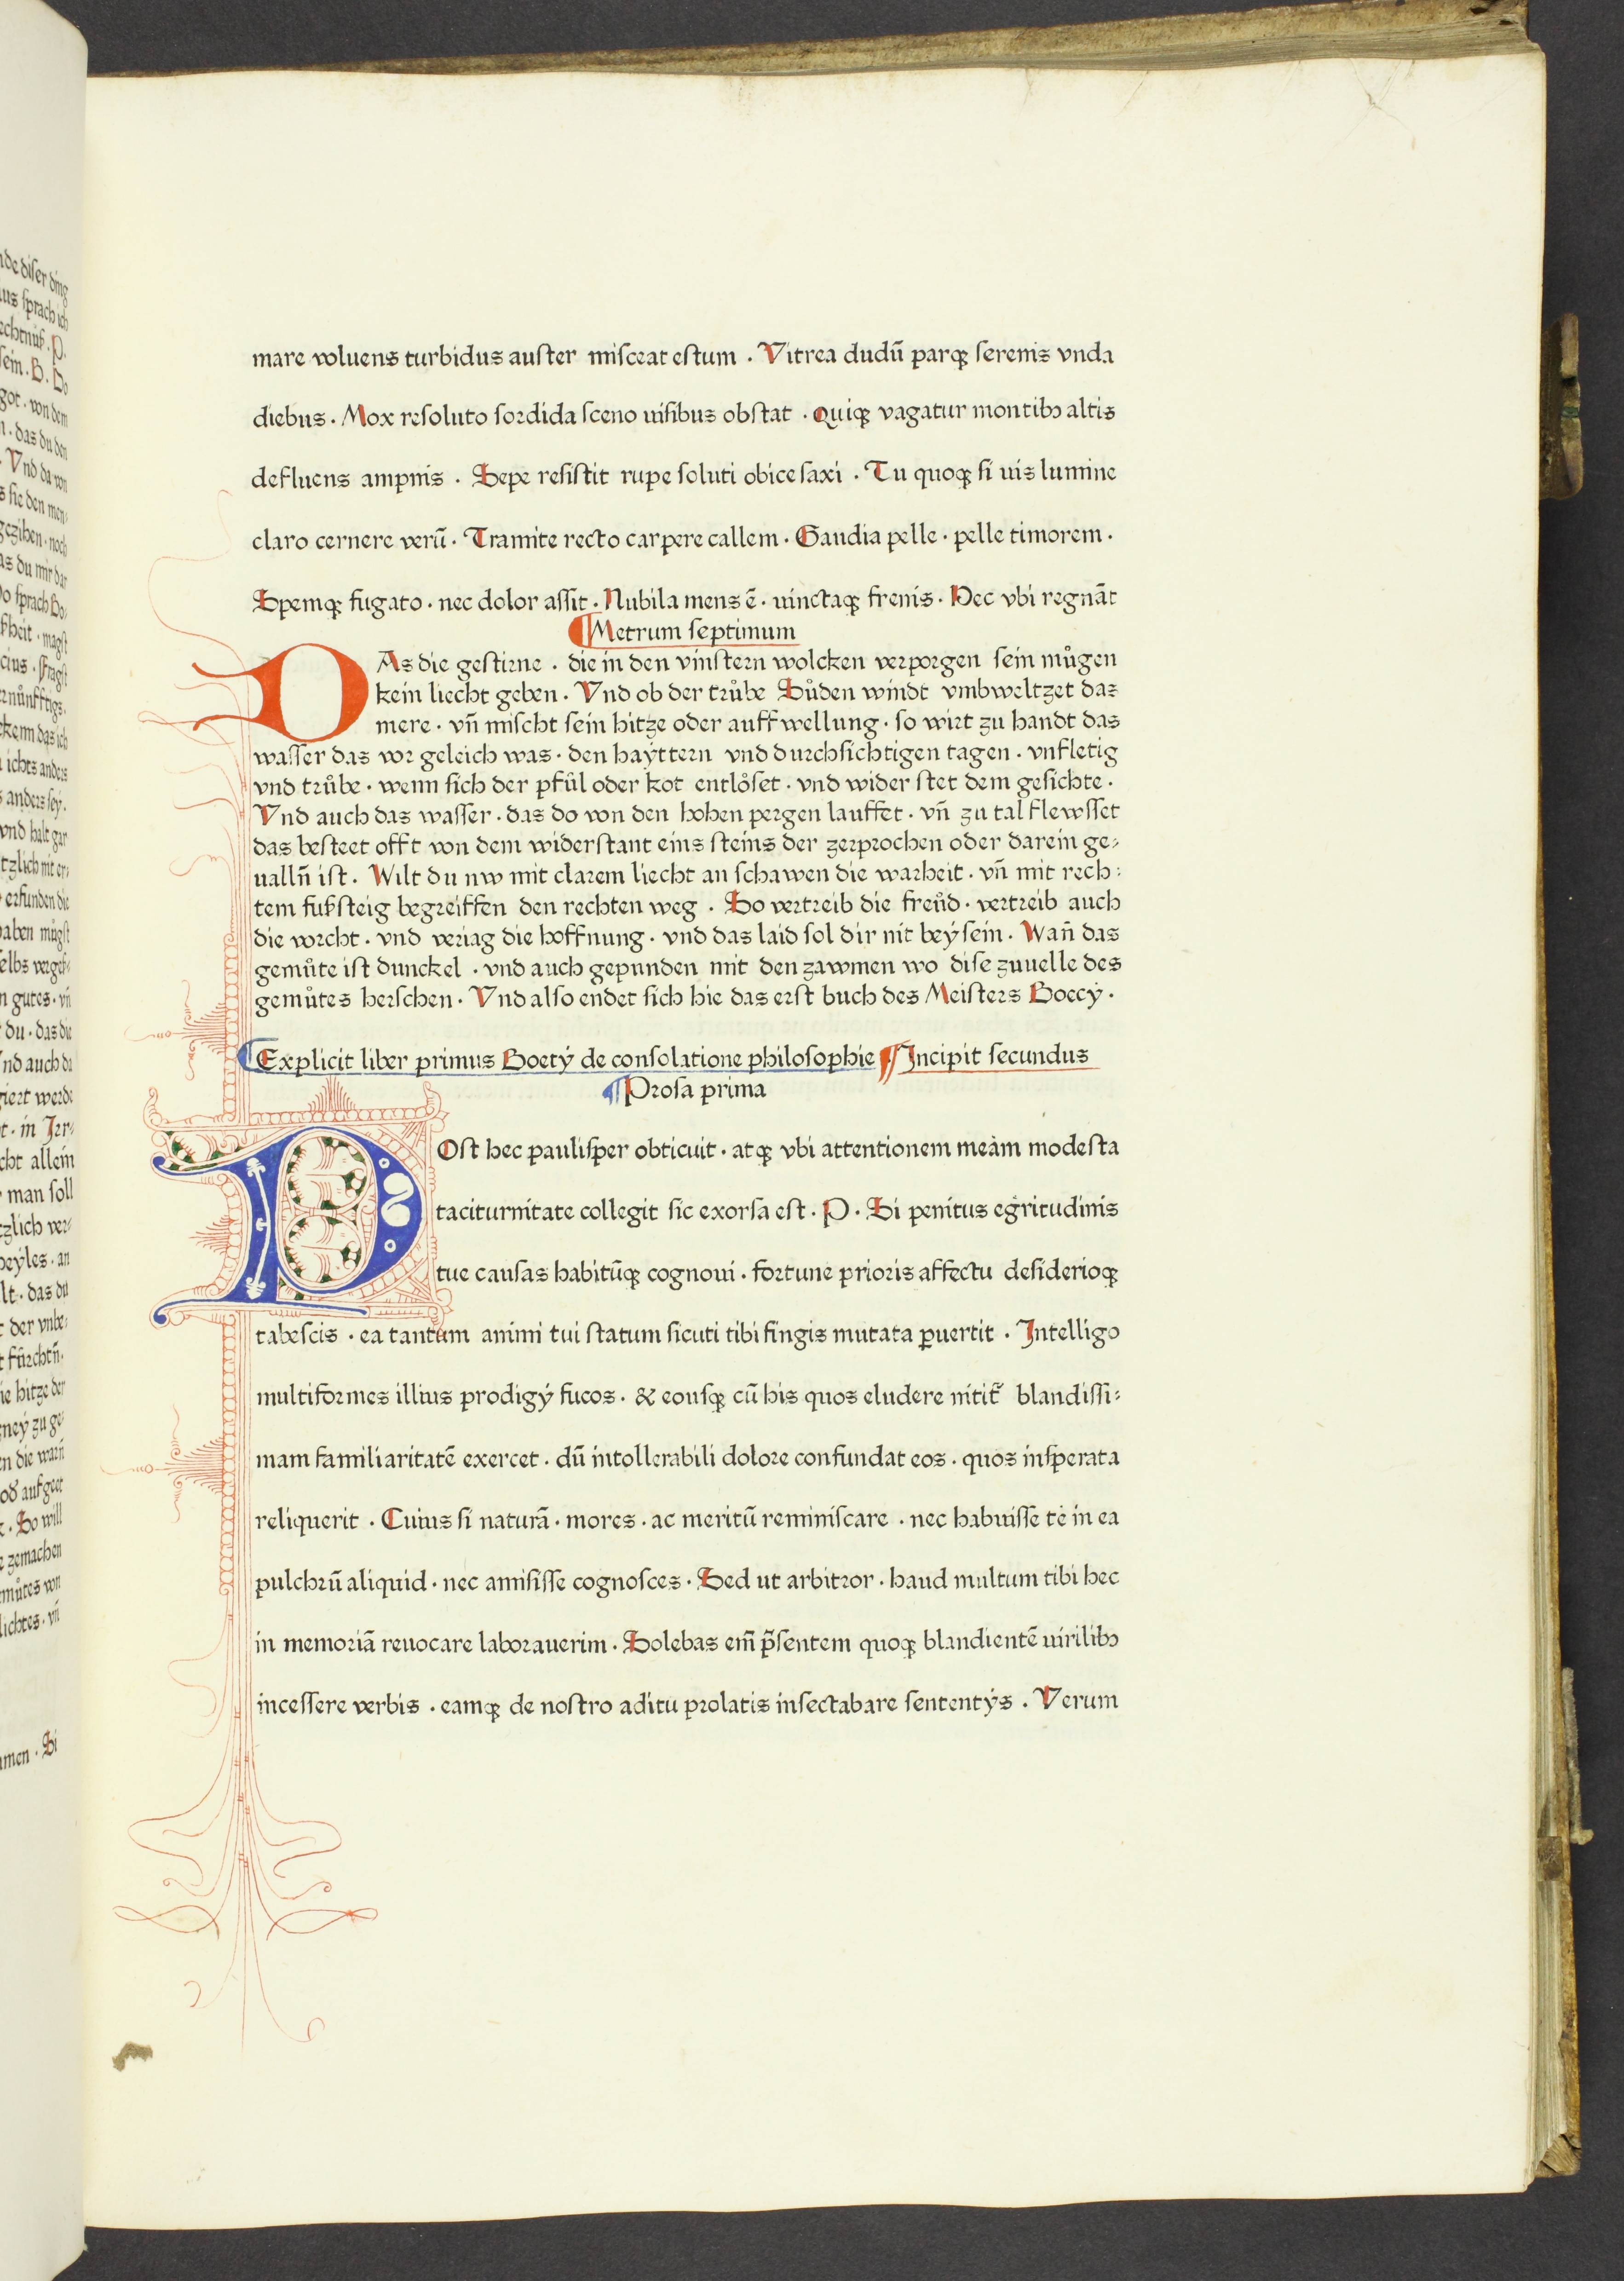 mare voluens turbidus auſter miſceat eſtum . Vitrea dudū parqꝫ ſerenis vnda
diebus . Mox reſoluto ſordida ſceno uiſibus obſtat . Quiqꝫ vagatur montibꝫ altis
defluens ampnis . Sepe reſiſtit rupe ſoluti obice ſaxi . Tu quoqꝫ ſi uis lumine
claro cernere verū . Tramite recto carpere callem . Gaudia pelle . pelle timorem .
Spemqꝫ fugato . nec dolor aſſit . Nubila mens ē . uinctaqꝫ frenis . Hec vbi regnāt
¶ Metrum ſeptimum
DAs die geſtirne . die in den vinſtern wolcken verporgen ſein můgen
kein liecht geben . Vnd ob der trůbe Sůden windt vmbweltzet das
mere . vn̄ miſcht ſein hitze oder auffwellung . ſo wirt zu handt das
waſſer das vor geleich was . den haÿttern vnd durchſichtigen tagen . vnfletig
vnd trůbe . wenn ſich der pfůl oder kot entlöſet . vnd wider ſtet dem geſichte .
Vnd auch das waſſer . das do von den hohen pergen lauffet . vn̄ zu tal flewſſet
das beſteet offt von dem widerſtant eins ſteins der zerprochen oder darein ge⸗
ualln̄ iſt . Wilt du nw mit clarem liecht an ſchawen die warheit . vn̄ mit rech⸗
tem fuſsſteig begreiffen den rechten weg . So vertreib die freůd . vertreib auch
die vorcht . vnd veriag die hoffnung . vnd das laid ſol dir nit beÿ ſein . Wan̄ das
gemůte iſt dunckel . vnd auch gepunden mit den zawmen wo diſe zuuelle des
gemůtes herſchen . Vnd alſo endet ſich hie das erſt buch des Meiſters Boecÿ .
¶ Explicit liber primus Boetÿ de conſolatione philoſophie ¶ Incipit ſecundus
¶ Proſa prima
POſt hec pauliſper obticuit . atqꝫ vbi attentionem meam modeſta
taciturnitate collegit ſic exorſa eſt . P . Si penitus egritudinis
tue cauſas habitūqꝫ cognoui . fortune prioris affectu deſiderioqꝫ
tabeſcis . ea tantum animi tui ſtatum ſicuti tibi fingis mutata ꝑuertit . Intelligo
multiformes illius prodigÿ fucos . & eouſqꝫ cū his quos eludere nitit᷑ blandiſſi⸗
mam familiaritatē exercet . dū intollerabili dolore confundat eos . quos inſperata
reliquerit . Cuius ſi naturā . mores . ac meritū reminiſcare . nec habuiſſe te in ea
pulchrū aliquid . nec amiſiſſe cognoſces . Sed ut arbitror . haud multum tibi hec
in memoriā reuocare laborauerim . Solebas em̄ p̄ſentem quoqꝫ blandientē uirilibꝫ
inceſſere verbis . eamqꝫ de noſtro aditu prolatis inſectabare ſententÿs . Verum